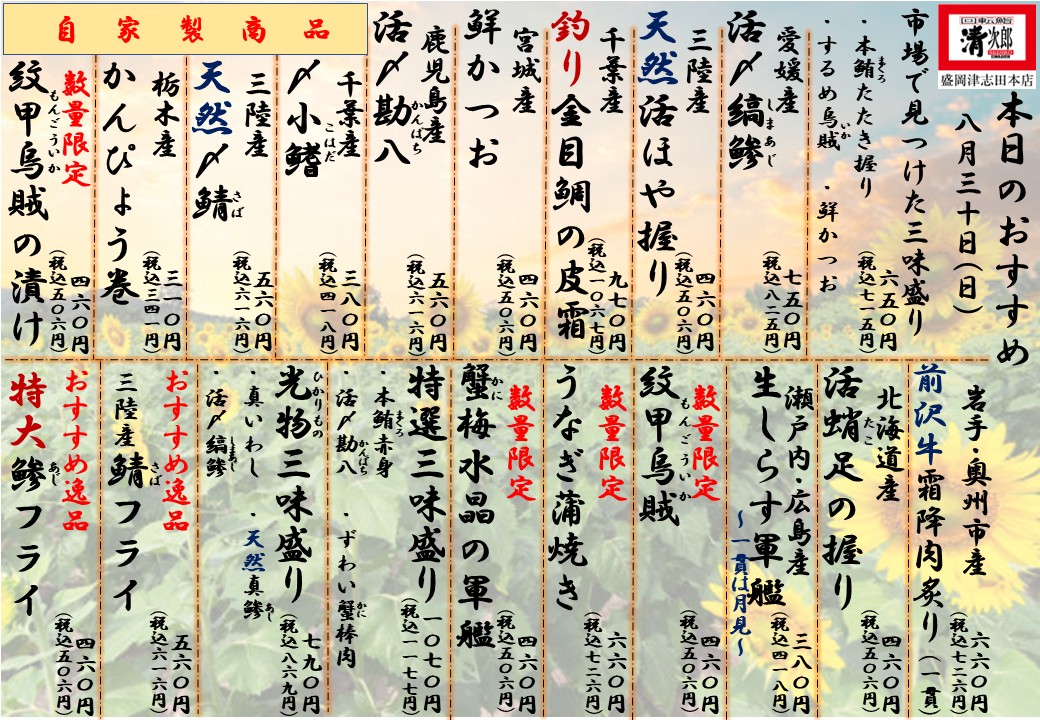 回転鮨
清次郎
盛岡津志田本店
本日のおすすめ
八月三十日(日)
市場で見つけた三味盛り
・本鮪たたき握り
まぐろ
・するめ烏賊 ・鮮かつお
いか
六五〇円
(税込七一五円)
愛媛産
活〆縞鯵
しまあじ
七五〇円
(税込八二五円)
三陸産
天然活ほや握り
四六〇円
(税込五〇六円)
千葉産
釣り金目鯛の皮霜
九七〇円
(税込一〇六七円)
宮城産
鮮かつお
四六〇円
(税込五〇六円)
鹿児島産
活〆勘八
かんぱち
五六〇円
(税込六一六円)
自家製商品
千葉産
〆小鰭
こはだ
三八〇円
(税込四一八円)
三陸産
天然〆鯖
さば
五六〇円
(税込六一六円)
栃木産
かんぴょう巻
三一〇円
(税込三四一円)
数量限定
紋甲烏賊の漬け
もんごういか
四六〇円
(税込五〇六円)
岩手・奥州市産
前沢牛霜降肉炙り(一貫)
六六〇円
(税込七二六円)
北海道産
活蛸足の握り
たこ
四六〇円
(税込五〇六円)
瀬戸内・広島産
生しらす軍艦
~一貫は月見~
三八〇円
(税込四一八円)
数量限定
紋甲烏賊
もんごういか
四六〇円
(税込五〇六円)
数量限定
うなぎ蒲焼き
六六〇円
(税込七二六円)
数量限定
蟹梅水晶の軍艦
かに
四六〇円
(税込五〇六円)
特選三味盛り
・本鮪赤身
まぐろ
・活〆勘八 ・ずわい蟹棒肉
かんぱち
かに
一〇七〇円
(税込一一七七円)
光物三味盛り
ひかりもの
・真いわし ・天然真鯵
あじ
・活〆縞鯵
しまあじ
七九〇円
(税込八六九円)
おすすめ逸品
三陸産鯖フライ
さば
五六〇円
(税込六一六円)
おすすめ逸品
特大鯵フライ
あじ
四六〇円
(税込五〇六円)